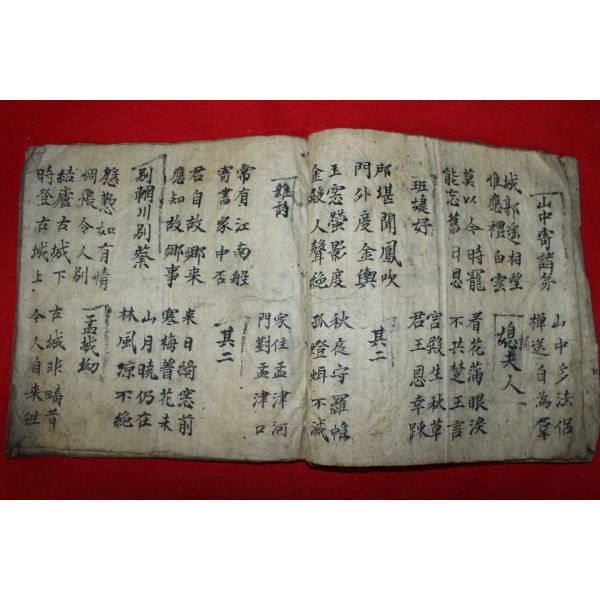 山中寄諸弟
山中多法侶
禪送自為羣
城郭遙相望
惟應禮白雲
媳夫人
莫以今時寵
能忘舊日恩
看花滿眼淚
不共楚王言
班婕妤
宮殿生秋草
君王恩幸踈
那堪聞鳳吹
門外度金輿
其二
玉窓螢影度
金殿人聲絶
秋夜守羅帷
孤燈煋不滅
雜詩
家住孟津河
門對孟津口
常有江南船
寄書家中否
其二
君自故鄉来
應知故鄉事
来日綺窓前
寒梅着花未
別輞川別業
山月曉仍在
林風凉不絶
慇懃如有情
惆悵令人別
孟城坳
結廬古城下
時登古城上
古城非疇昔
今人自来往